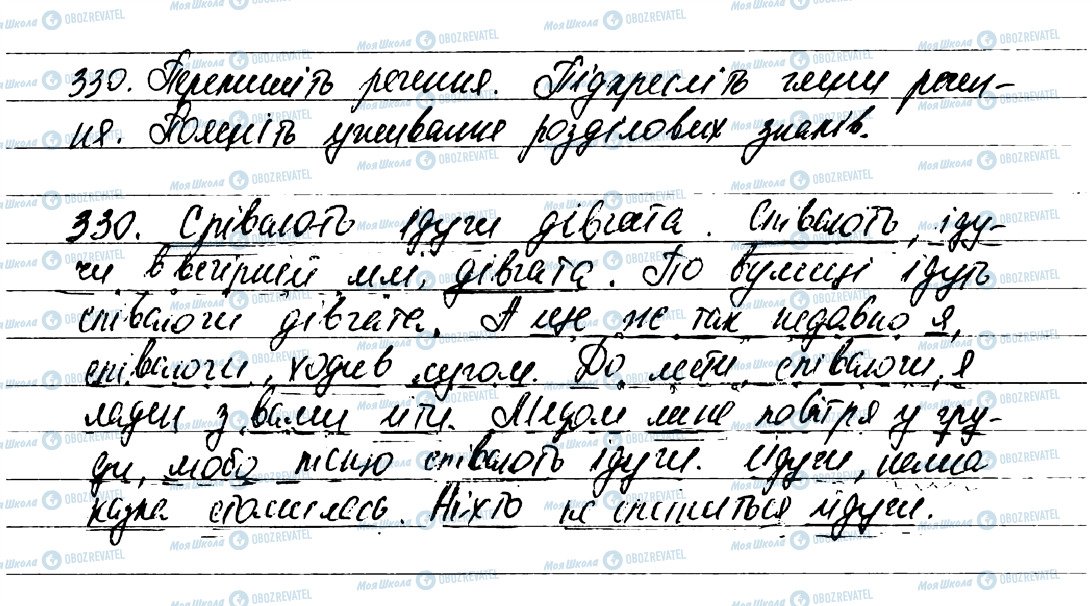 330. Перепишіть речення. Підкресліть члени речен-
ня. Поясніть уживання розділових знаків.
330. Співають ідучи дівчата. Співають, іду-
чи в вечірній млі, дівчата. По вулиці ідуть
співаючи дівчата. А ще ж так недавно я,
співаючи, ходив лугом. До мети, співаючи, я
ладен з вами йти. Медом лине повітря у гру-
ди, любо пісню співають ідучи. Ідучи,
казка стомилась. Ніхто не спиниться йдучи.